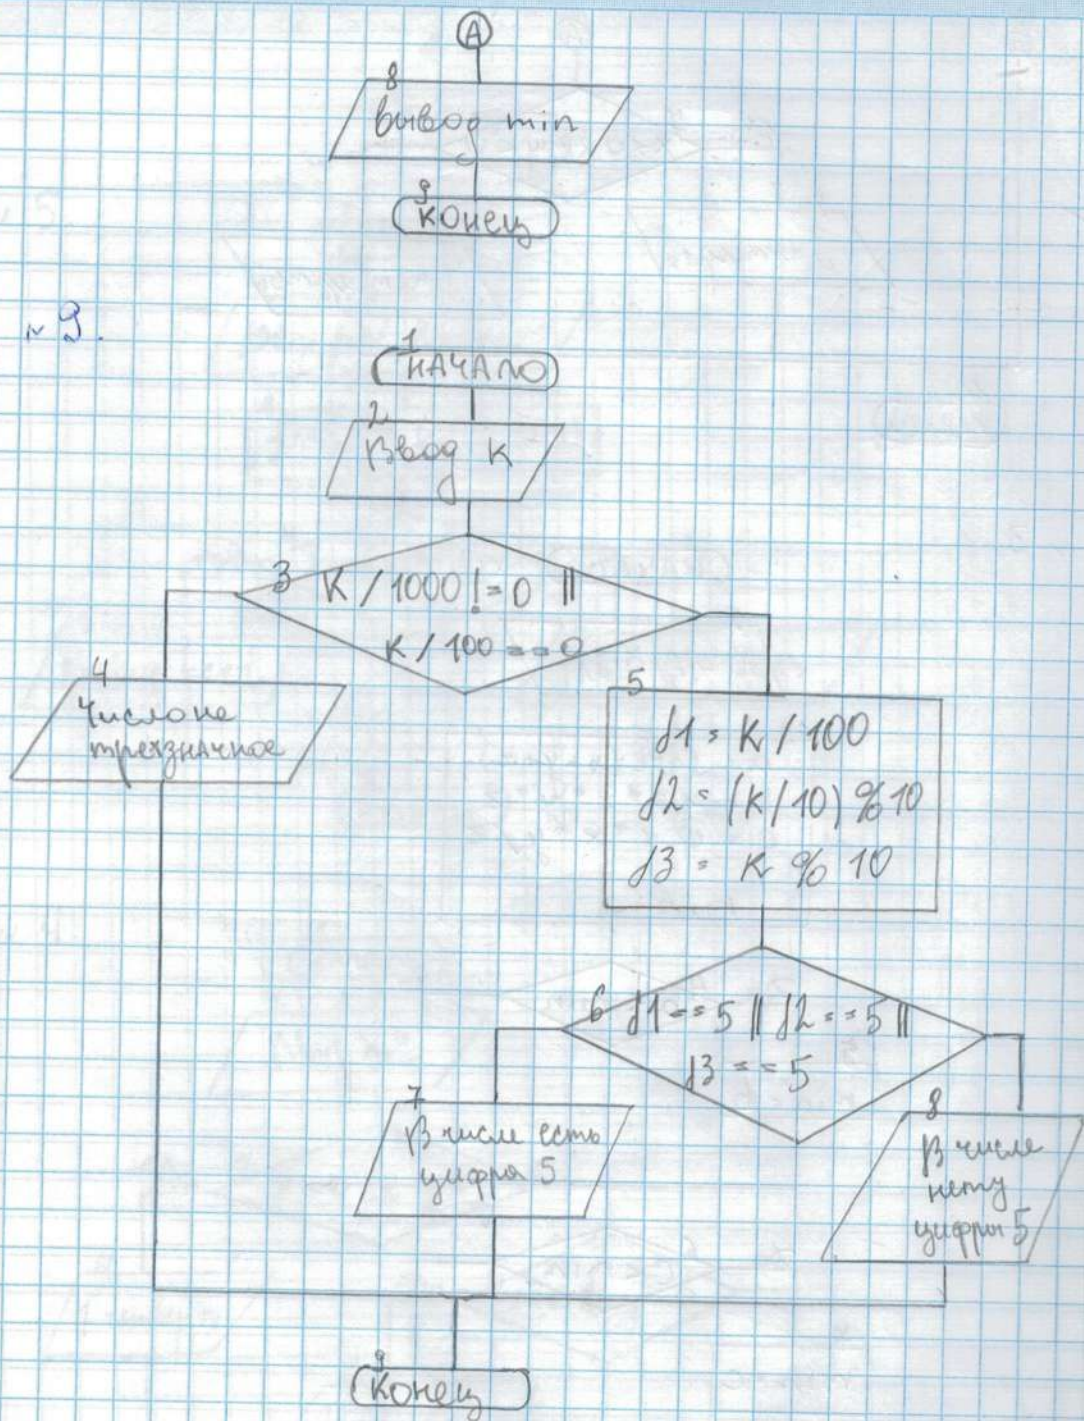 A
8
вывод min
9
конец
№ 9.
1
НАЧАЛО
2
Ввод К
3 К / 1000 != 0 ||
К / 100 == 0
4
Число не
трехзначное
5
d1 = К / 100
d2 = (К / 10) % 10
d3 = К % 10
6 d1 == 5 || d2 == 5 ||
d3 == 5
7
В числе есть
цифра 5
8
В числе
нету
цифры 5
9
Конец